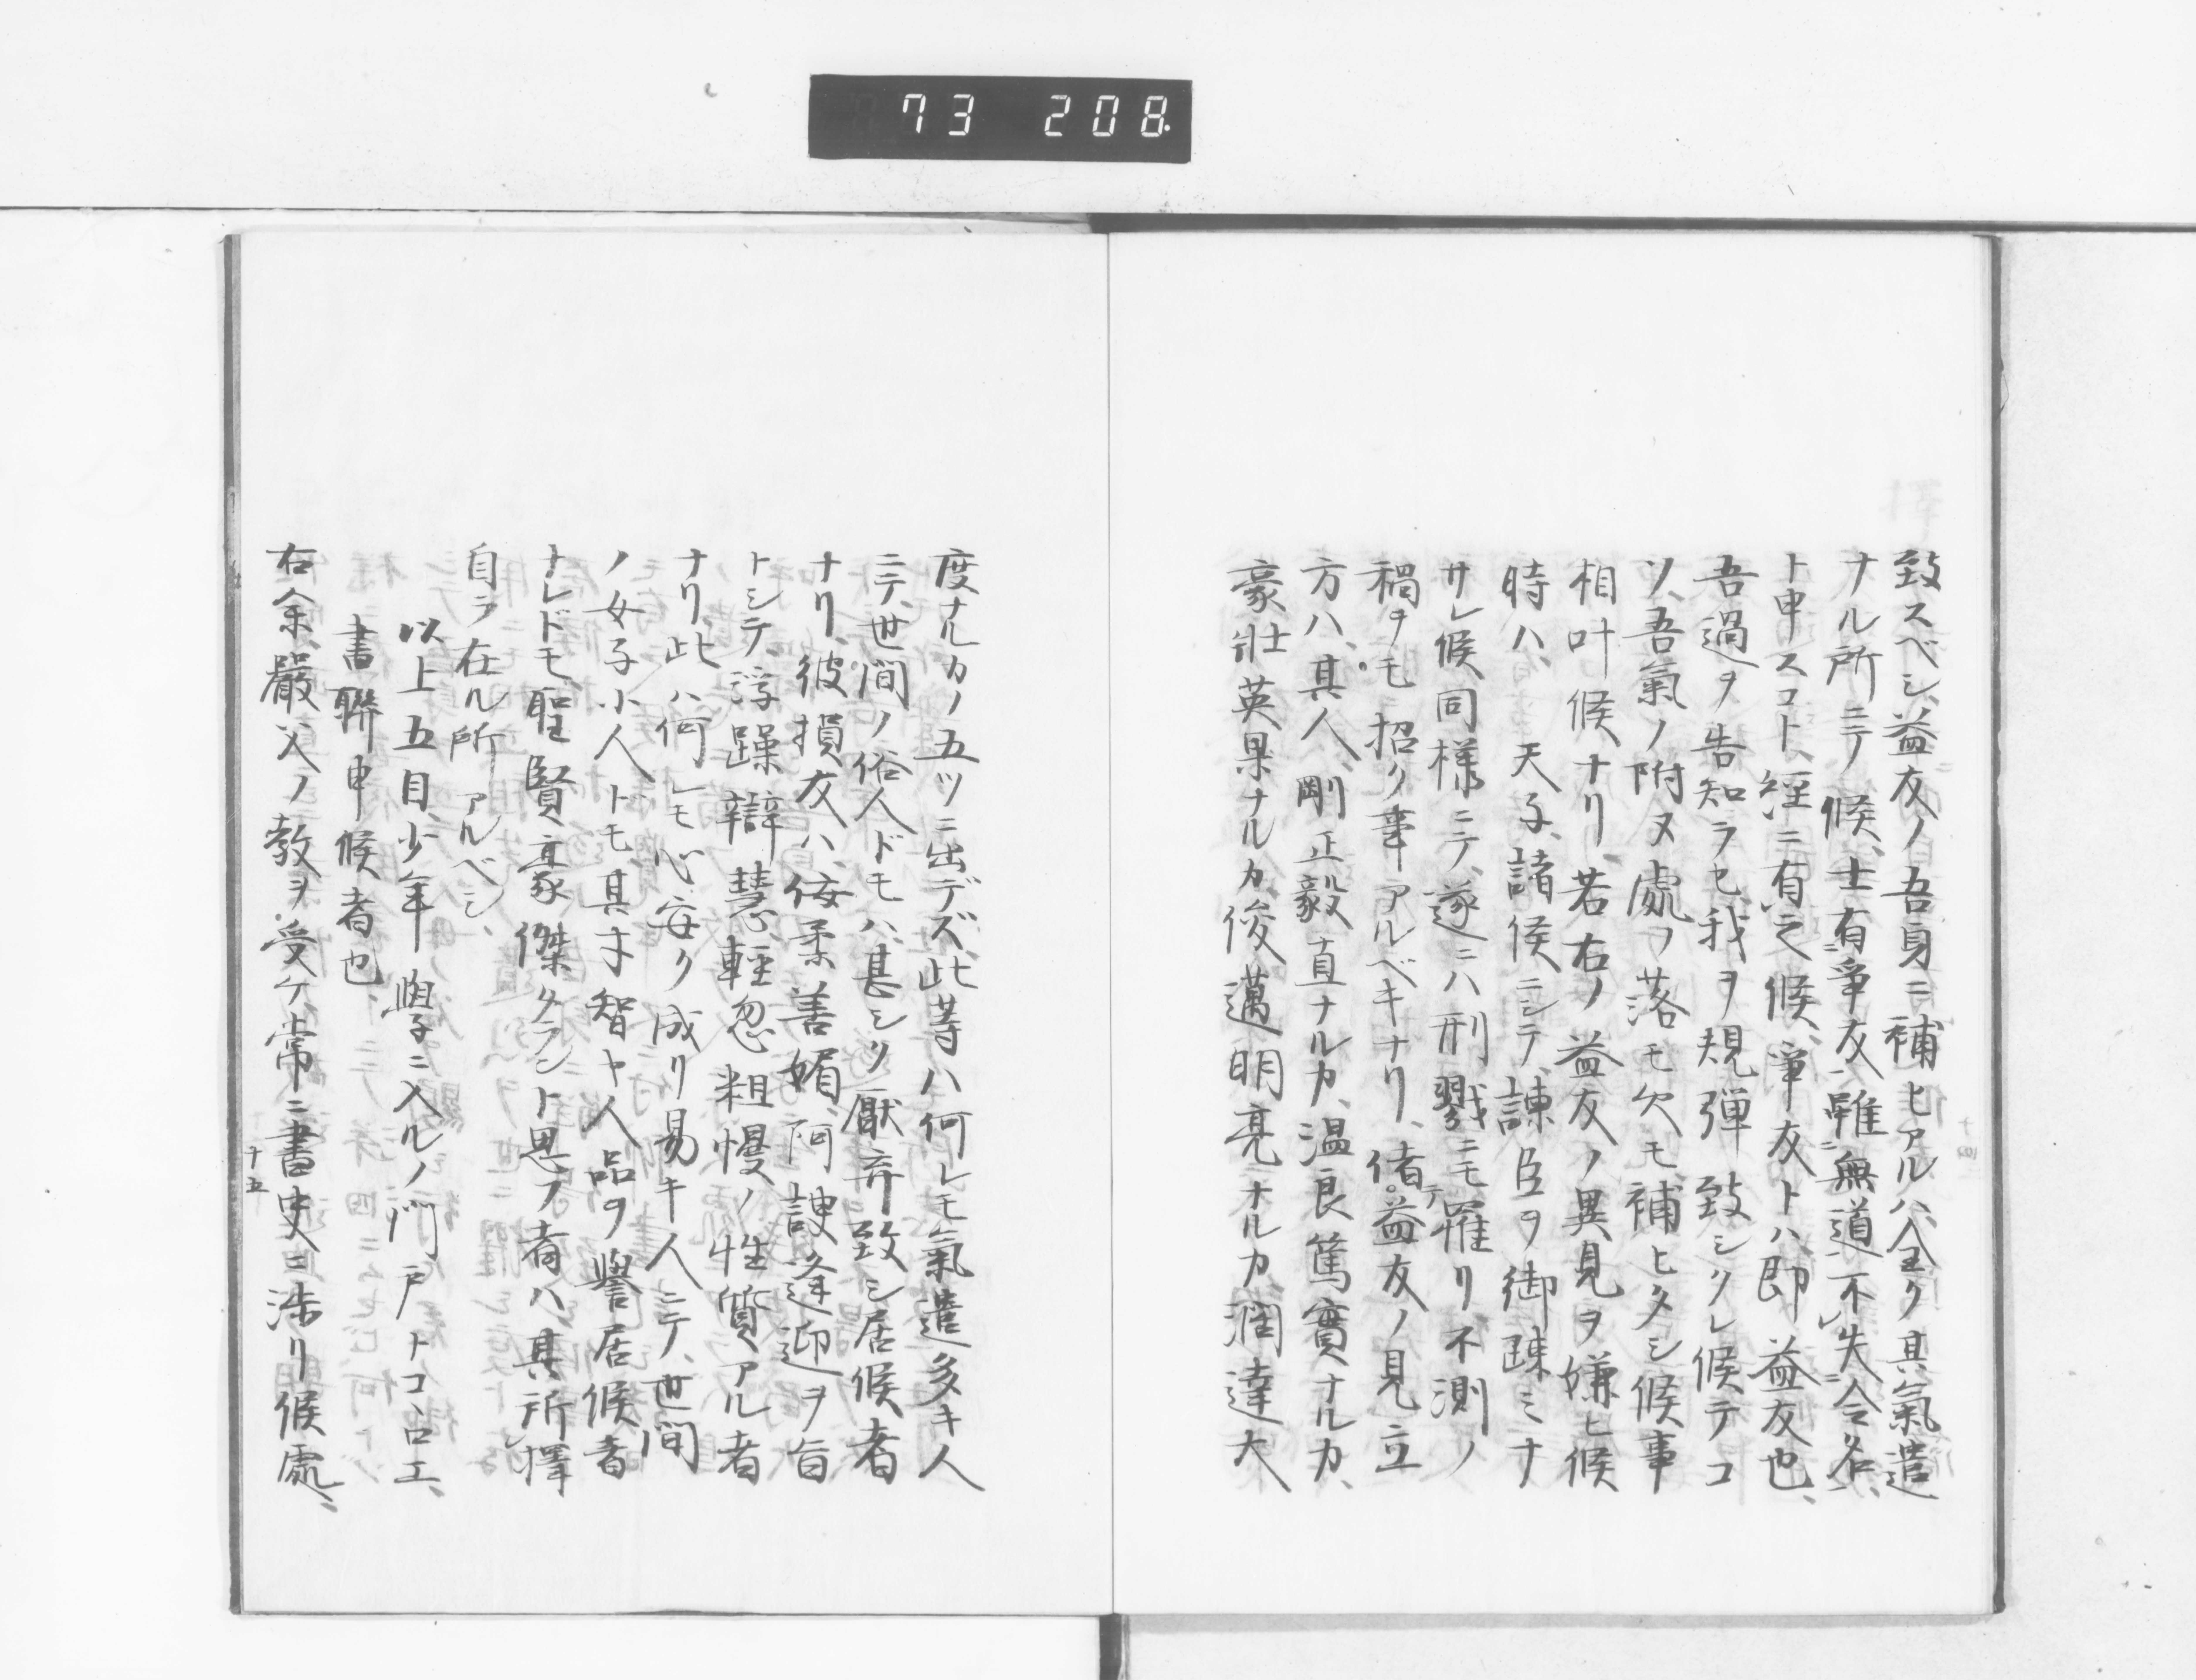 73 208
致スベシ、益友ノ吾身ニ補ヒアルハ、全ク其氣遣
ナル所ニテノ候、士有爭友、雖無道、不失令名、
ト申スコト、經ニ有之候、爭友トハ、即益友也、
吾過ヲ告知ラセ、我ヲ規彈致シクレ候テコ
ソ、吾氣ノ附ヌ處ノ落モ欠モ補ヒタシ候事
相叶候ナリ、若右ノ益友ノ異見ヲ嫌ヒ候
時ハ、天子諸侯ニシテ、諫臣ヲ御疎ミナ
サレ候同様ニテ、遂ニハ刑戮ニモ罹リ不測ノ
禍ヲモ招ク事アルベキナリ、偖テ益友ノ見立
方ハ、其人剛正毅直ナルカ、温良篤實ナルカ、
豪壯英果ナルカ、俊邁明亮ナルカ、濶達大
度ナルカノ五ツニ出デズ、此等ハ何レモ氣遣多キ人
ニテ、世間ノ俗人ドモハ、甚シク厭弃致シ居候者
ナリ、彼損友ハ、佞柔善媚、阿諛逢迎ヲ旨
トシテ、浮躁辯慧、輕忽粗慢ノ性質アル者
ナリ、此ハ何レモ心安ク成リ易キ人ニテ、世間
ノ女子小人ドモ、其才智ヤ人品ヲ譽居候者
ナレドモ、聖賢豪傑タラント思フ者ハ、其所擇
自ラ在ル所アルベシ、
以上五目、少年學ニ入ルノ門戸トコヽロエ、
書聯申候者也
右余嚴父ノ教ヲ受ケ、常ニ書史ニ渉リ候處、
十五